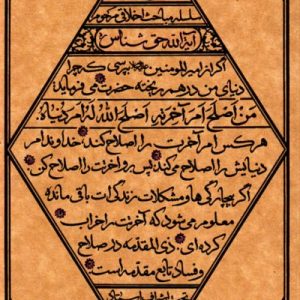 سلسله مباحث اخلاقی مرحوم
آیة الله حق شناس
اگر از امیرالمومنین بپرسی که چرا
دنیای من درهم ریخته حضرت می فرماید:
مَنْ اَصْلَحَ اَمْرَ آخِرَتِهِ اَصْلَحَ اللهُ لَهُ اَمْرَ دُنْیاهُ.
هر کس امر آخرت را اصلاح کند خداوند امر
دنیایش را اصلاح می کند پس برو آخرت را اصلاح کن.
اگر بیچارگی ها و مشکلات زندگی ات باقی مانده
معلوم می شود که آخرتت را خراب
کرده ای. ذی المقدمه در صلاح
و فساد تابع مقدمه است